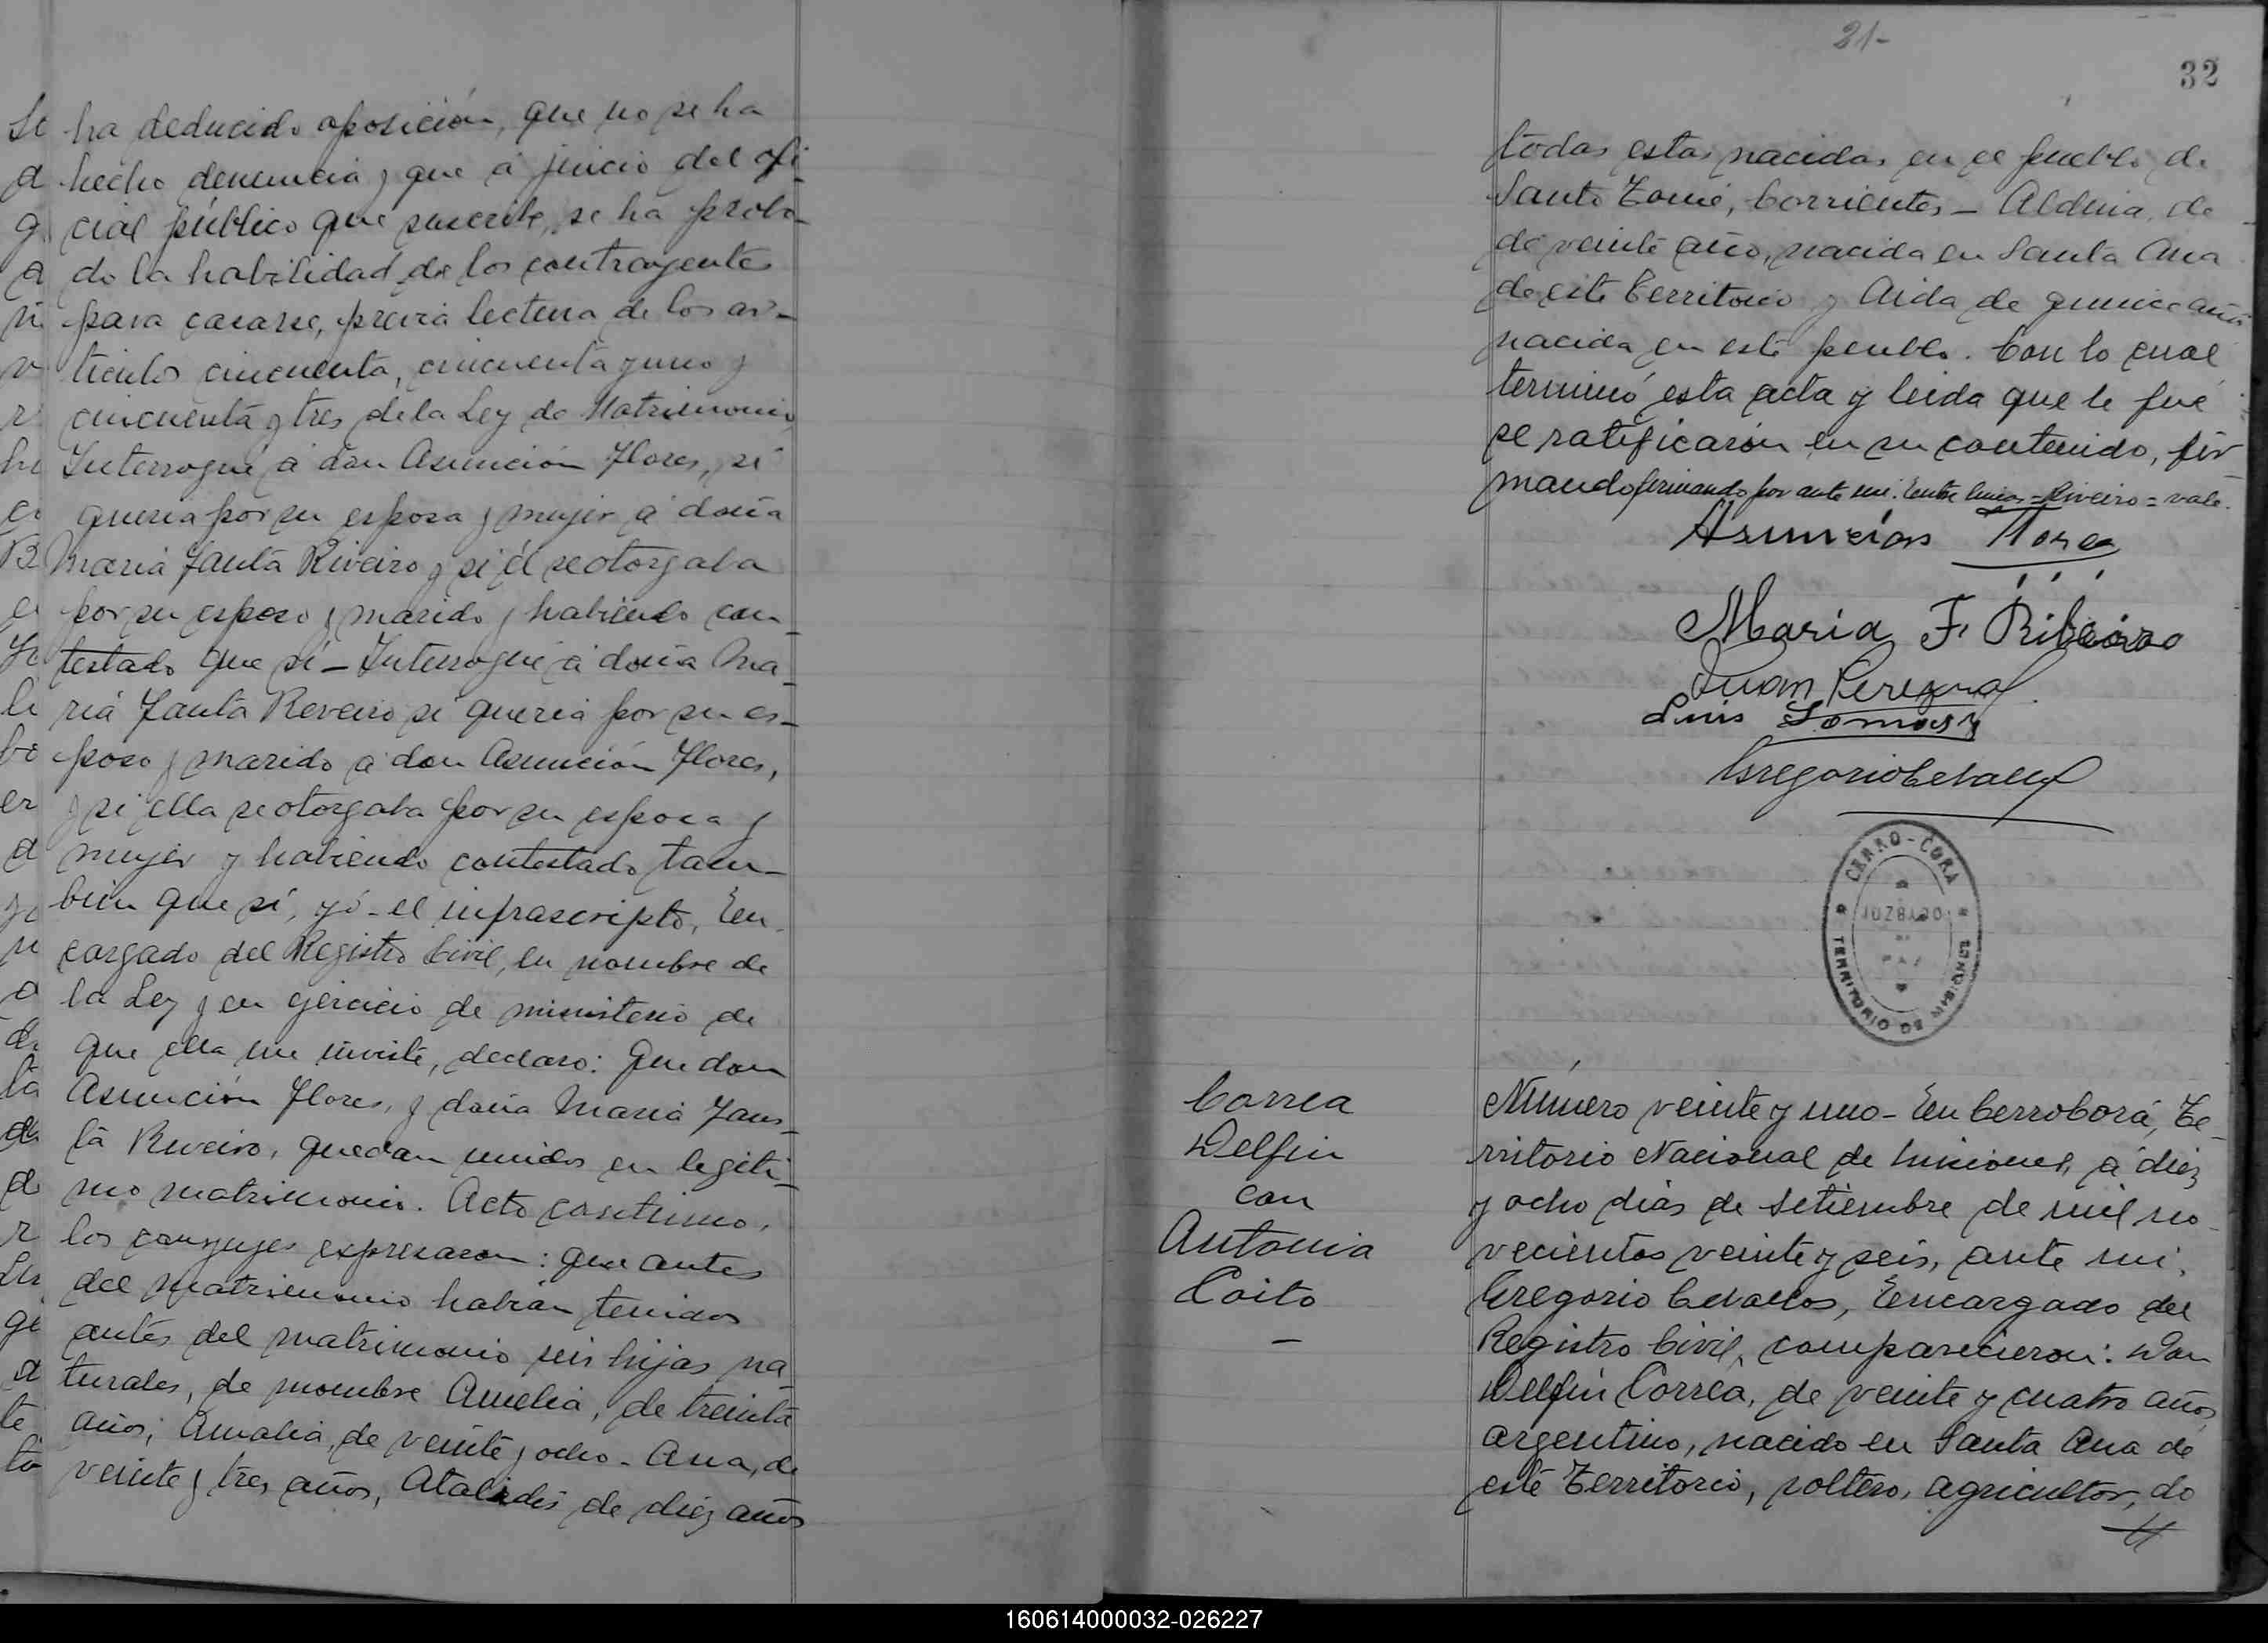 ha deducido oposición, que no se ha
hecho denuncia y que á juicio del ofi
cial público que suscribe, se ha proba-
do la habilidad de los contrayentes
para casarse, previa lectura de los ar-
ticulos cincuenta, cincuenta y uno y
cincuenta y tres de la Ley de Matrimonio
Interrogué á don Asunción Flores, si
queria por su esposa y mujer á doña
Maria Fausta Riveiro y si él se otorgaba
por su esposo y marido y habiendo con-
testado que sí - Interrogué á doña Ma-
ria Fausta Reveiro si queria por su es-
poso y marido a don Asunción Flores,
y si ella se otorgaba por su esposa y
mujer y habiendo contestado tam-
bien que sí, yó - el infrascripto, En-
cargado del Registro Civil, en nombre de
la Ley y en ejercicio de ministerio de
que ella me inviste, declaro: Que don
Asunción Flores, y doña Maria Faus-
ta Riveiro, quedan unidos en legiti-
mo matrimonio. Acto continuo,
los conyuges expresaron: que antes
del matrimonio habian tenidos
antes del matrimonio seis hijas na-
turales, de nombre Amelia, de treinta
años; Amalia, de veinte y ocho - Ana, de
veinte y tres años, de diez años
21-
32
todas estas nacidas en el pueblo de
Santo Tomé, Corrientes - de
de veinte año, nacida en Santa Ana
de este Territorio y Aida de quince años
nacida en este pueblo. Con lo cual
terminó esta acta y leida que le fué
se ratificarón en su contenido, fir
mando firmando por ante mi: Entre lineas = Riveiro = vale.
Asunción Flores
Maria F. Ribeiro
Juan
Luis
Gregorio Cevallos
CERRO-CORA
JUZGADO
DE
PAZ
TERRITORIO DE MISIONES
Correa
Delfin
con
Antonia
Coito
-
Número veinte y uno - En Cerro Corá, Te-
rritorio Nacional de Misiones, á diez
y ocho dias de Setiembre de mil no-
vecientos veinte y seis, ante mi,
Gregorio Cevallos, Encargado del
Registro Civil, comparecieron: Don
Delfin Correa, de veinte y cuatro años
argentino, nacido en Santa Ana de
este Territorio, soltero, agricultor, do
160614000032-026227